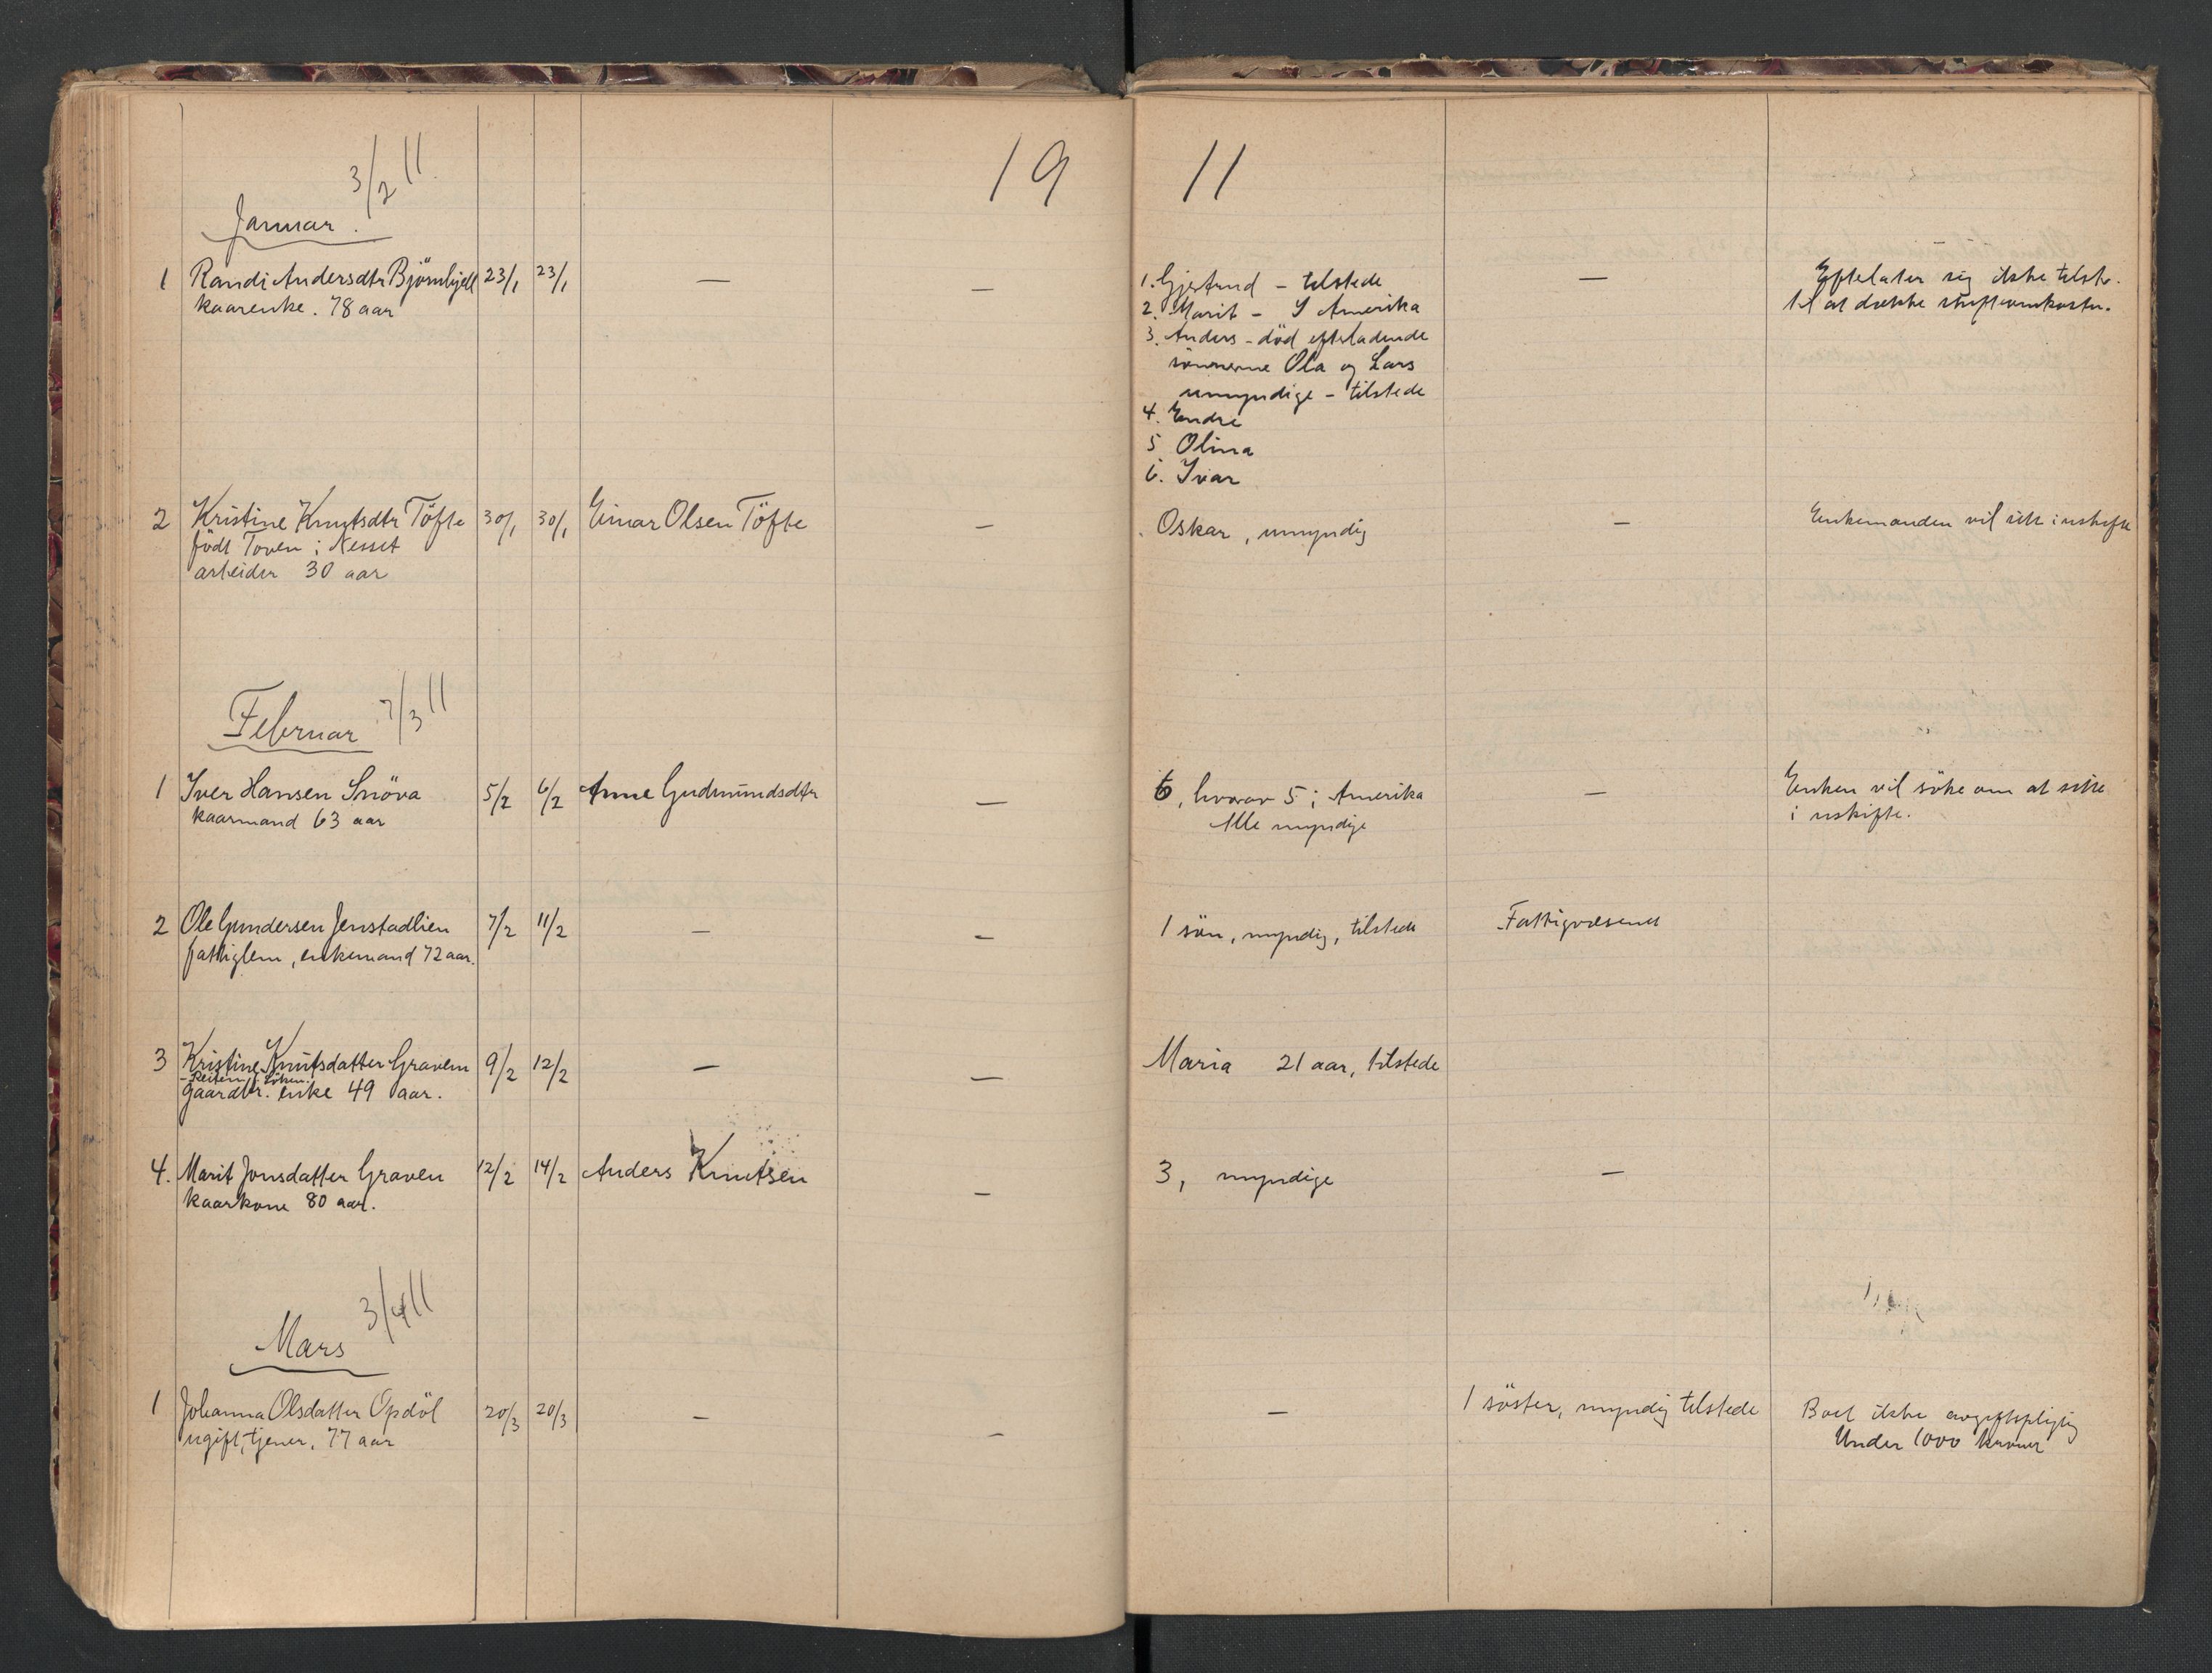 19 11
3/2 11.
Januar.
1 Randi Andersdtr Björnhjell 23/1 23/1 — — 1. Gjertrud - tilstede — Efterlater sig ikke tilstr.
kaarenke. 78 aar 2. Marit - I Amerika til at dække skifteomkostn.
3. Anders - död efterladende
sönnerne Ola og Lars
umyndige - tilstede
4. Endre
5 Olina
6. Ivar
2 Kristine Knutsdtr Töfte 30/1 30/1 Einar Olsen Töfte — Oskar, umyndig — Enkemanden vil sitte i uskifte
födt Toven i Nesset
arbeider 30 aar
Februar 7/3 11
1 Iver Hansen Snöva 5/2 6/2 Anne Gudmundsdtr — 6, hvorav 5 i Amerika — Enken vil söke om at sitte
kaarmand 63 aar Alle myndige i uskifte.
2 Ole Gundersen Jenstadlien 7/2 11/2 — — 1 sön, myndig, tilstede Fattigvæsenet
fattiglem, enkemand 72 aar.
3 Kristine Knutsdatter Gravem 9/2 12/2 — — Maria 21 aar, tilstede
- Reiten i Löken.
gaardbr. enke 49 aar.
4. Marit Jonsdatter Graven 12/2 14/2 Anders Knutsen — 3, myndige —
kaarkone 80 aar.
3/4 11
Mars
1 Johanna Olsdatter Opdöl 20/3 20/3 — — — 1 söster, myndig tilstede Boet ikke avgiftspligtig
ugift, tjener, 77 aar Under 1000 kroner